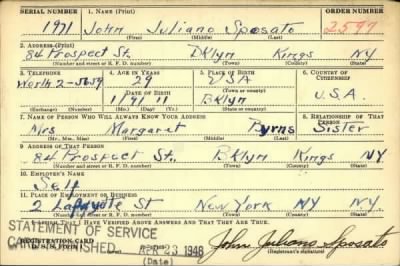 SERIAL NUMBER 1. NAME (Print) ORDER NUMBER
1971 John Juliano Sposato 2597
(First) (Middle) (Last)
2. ADDRESS (Print)
84 Prospect St. Bklyn Kings NY
(Number and street or R. F. D. number) (Town) (County) (State)
3. TELEPHONE 4. AGE IN YEARS 5. PLACE OF BIRTH 6. COUNTRY OF CITIZENSHIP
Worth 2-5659 29 USA
DATE OF BIRTH
11 Bklyn U.S.A.
(Exchange) (Number) (Mo.) (Day) (Yr.) (State or country)
7. NAME OF PERSON WHO WILL ALWAYS KNOW YOUR ADDRESS 8. RELATIONSHIP OF THAT PERSON
Mrs Margaret Byrns Sister
(Mr., Mrs., Miss) (First) (Middle) (Last)
9. ADDRESS OF THAT PERSON
84 Prospect St., Bklyn Kings NY
(Number and street or R. F. D. number) (Town) (County) (State)
10. EMPLOYER'S NAME
Self
11. PLACE OF EMPLOYMENT OR BUSINESS
2 Lafayette St New York NY NY
(Number and street or R. F. D. number) (Town) (County) (State)
I AFFIRM THAT I HAVE VERIFIED ABOVE ANSWERS AND THAT THEY ARE TRUE.
STATEMENT OF SERVICE
REGISTRATION CARD
APR 23 1948
John Juliano Sposato
(Date) (Registrant's signature)